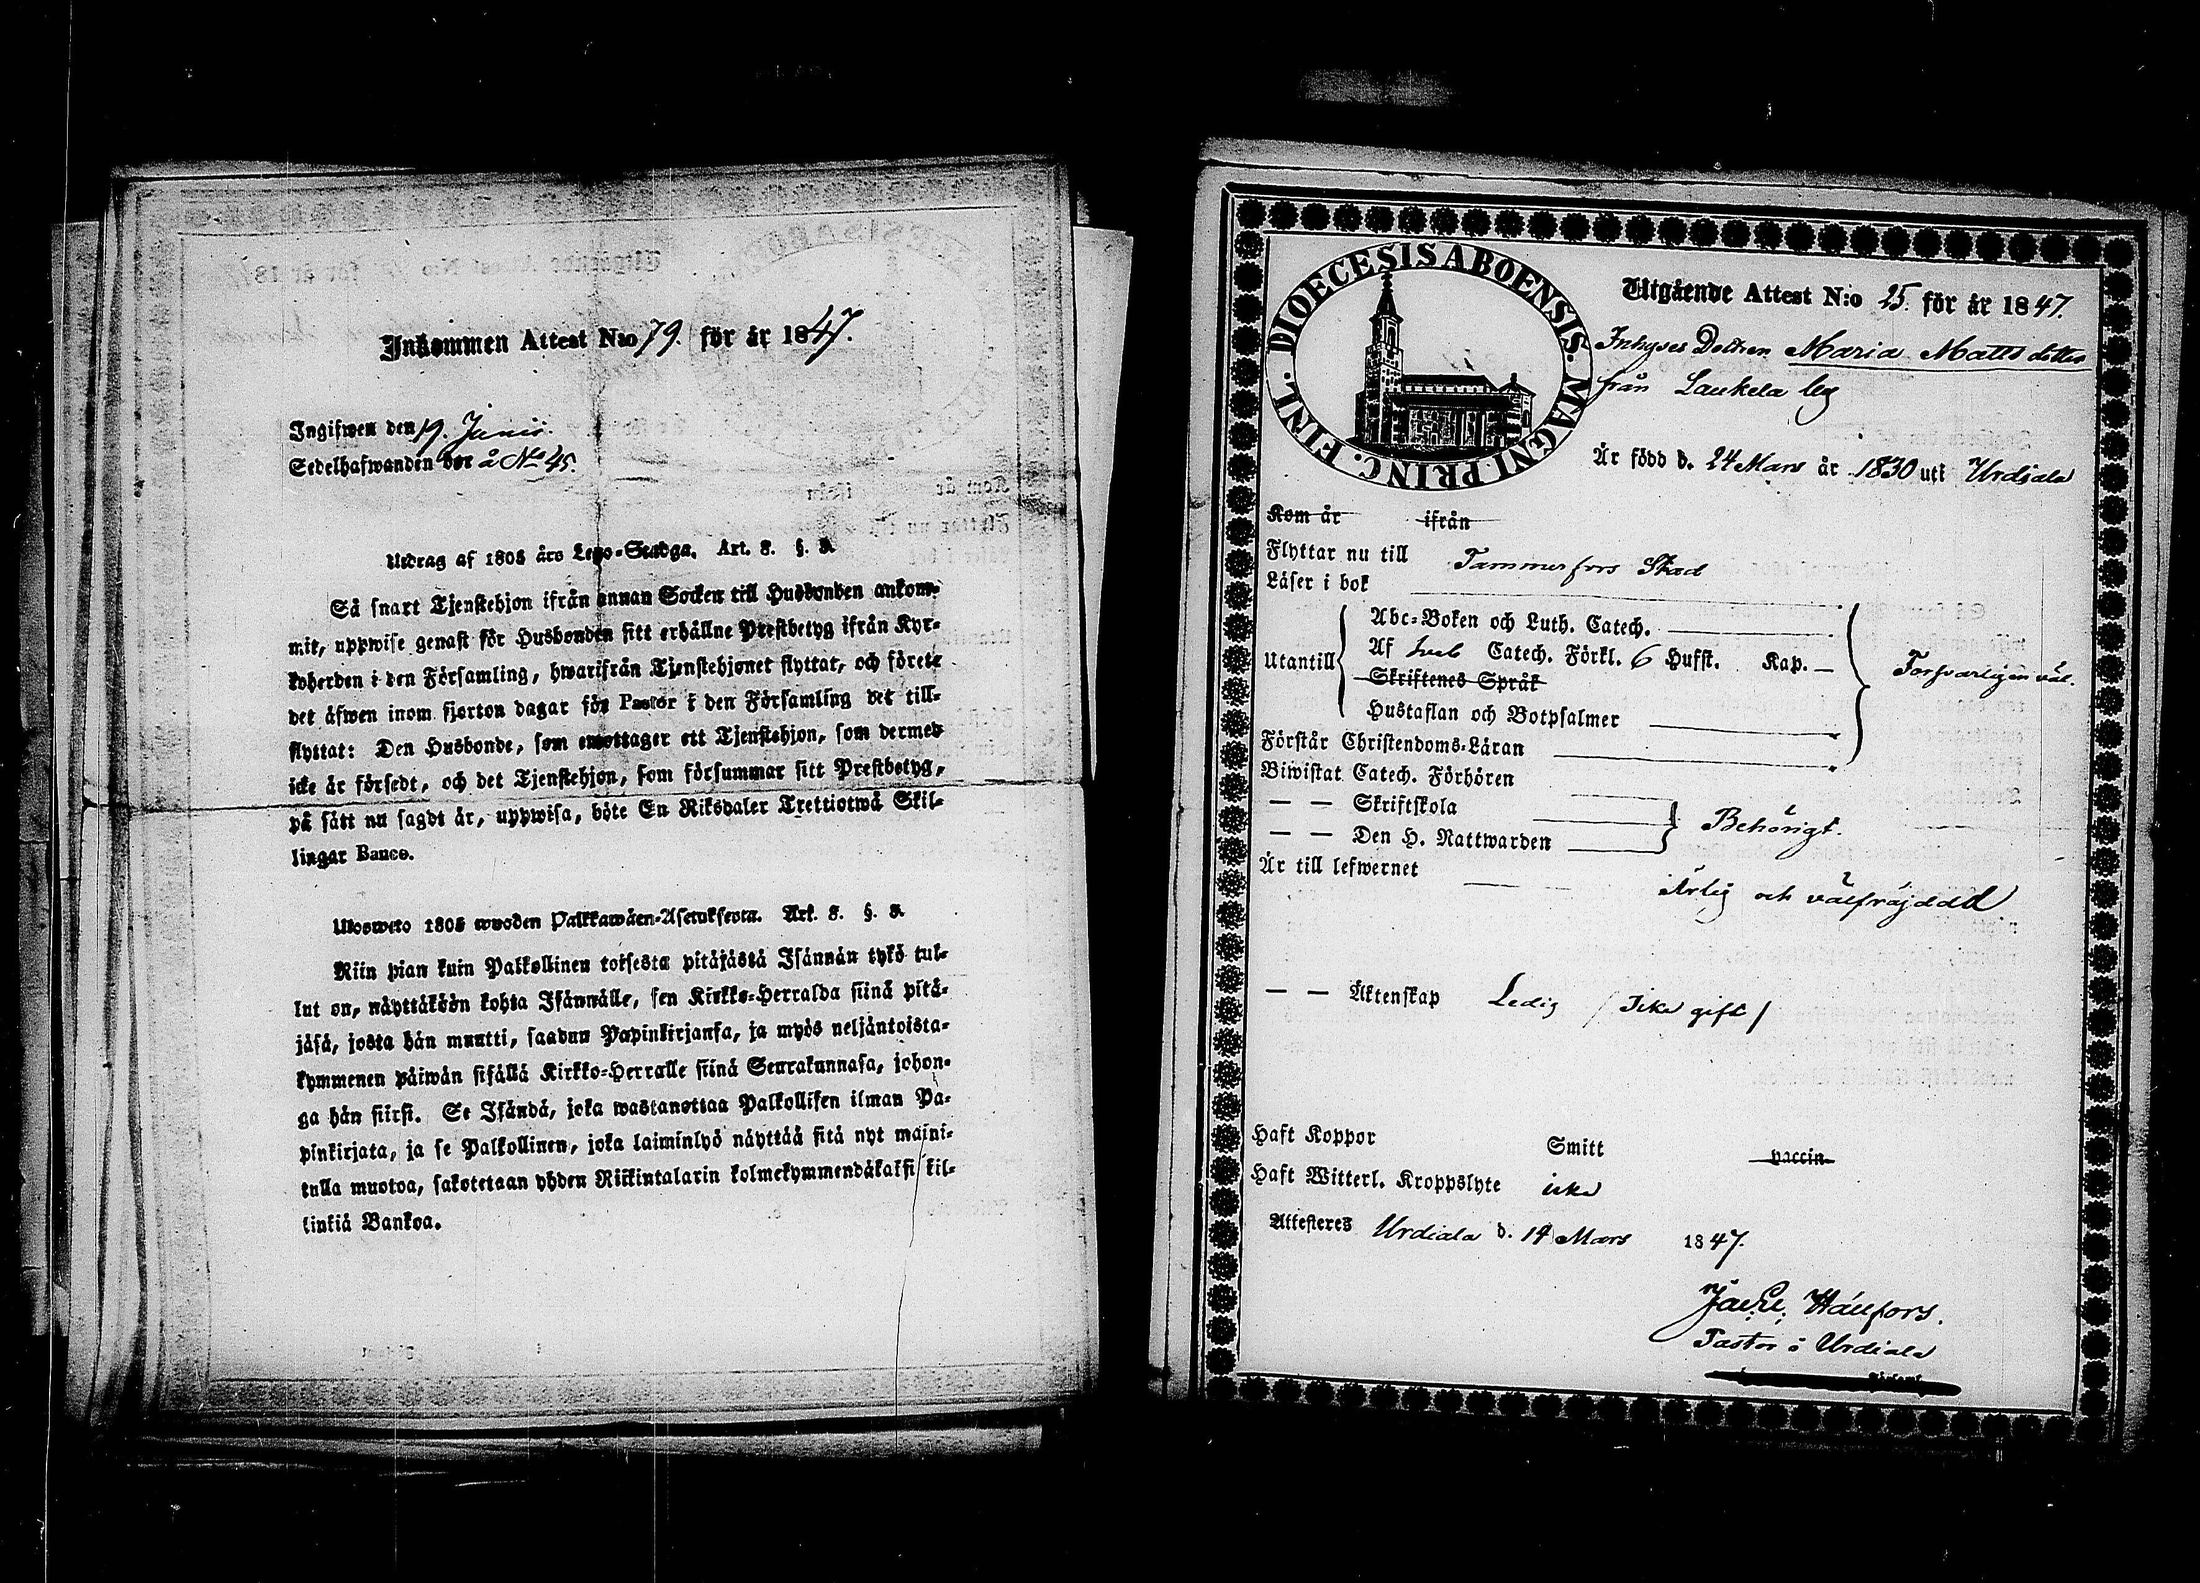 Inkommen Attest N:o 79. för år 1847.
Ingifwen den 19. Junii.
Sedelhafwanden bor å No 45.
Utdrag af 1805 års Lego-Stadga. Art. 8. §. 3.
Så snart Tjenstehjon ifrån annan Socken till Husbonden ankom-
mit, uppwise genast för Husbonden sitt erhållne Prestbetyg ifrån Kyr-
koherden i den Församling, hwarifrån Tjenstehjonet flyttat, och förete
det äfwen inom fjorton dagar för Pastor i den Församling det till-
flyttat: Den Husbonde, som emottager ett Tjenstehjon, som dermed
icke är försedt, och det Tjenstehjon, som försummar sitt Prestbetyg,
på sätt nu sagdt är, uppwisa, böte En Riksdaler Trettiotwå Skil-
lingar Banco.
Ulosweto 1805 wuoden Palkkawäen-Asetuksesta. Art. 8. §. 3.
Niin pian kuin Palkollinen toisesta pitäjästä Isännän tykö tul-
lut on, näyttäköön kohta Isännälle, sen Kirkko-Herralda siinä pitä-
jäsä, josta hän muutti, saadun Papinkirjansa, ja myös neljäntoista-
kymmenen päiwän sisällä Kirkko-Herralle siinä Seurakunnasa, johon-
ga hän siirsi. Se Isändä, joka wastanottaa Palkollisen ilman Pa-
pinkirjata, ja se Palkollinen, joka laiminlyö näyttää sitä nyt maini-
tulla muotoa, sakotetaan yhden Riikintalarin kolmekymmendäkaksi kil-
linkiä Bankoa.
DIOECESIS ABOENSIS. MAGNI. PRINC. FINL.
Utgående Attest N:o 25. för år 1847.
Inhyses Dottren Maria Matts dotter
från Laukela by
Är född d. 24 Mars år 1830 uti Urdiala
Kom år ifrån
Flyttar nu till Tammerfors Stad
Läser i bok
Abc-Boken och Luth. Catech.
Utantill Af Catech. Förkl. 6 Hufst. Kap. — Försvarligen väl.
Skriftenes Språk
Hustaflan och Botpsalmer
Förstår Christendoms-Läran
Biwistat Catech. Förhören
— — Skriftskola
Behörigt.
— — Den H. Nattwarden
Är till lefwernet Ärlig och välfräjdad
— — Äktenskap Ledig / Icke gift /
Haft Koppor Smitt vaccin
Haft Witterl. Kroppslyte icke
Attesteres Urdiala d. 14 Mars 1847.
Pastor i Urdiala